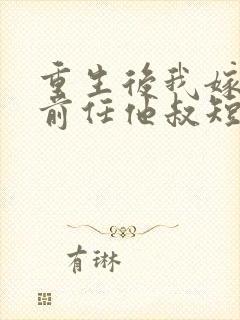 重生後我嫁
前任他叔短
有琳